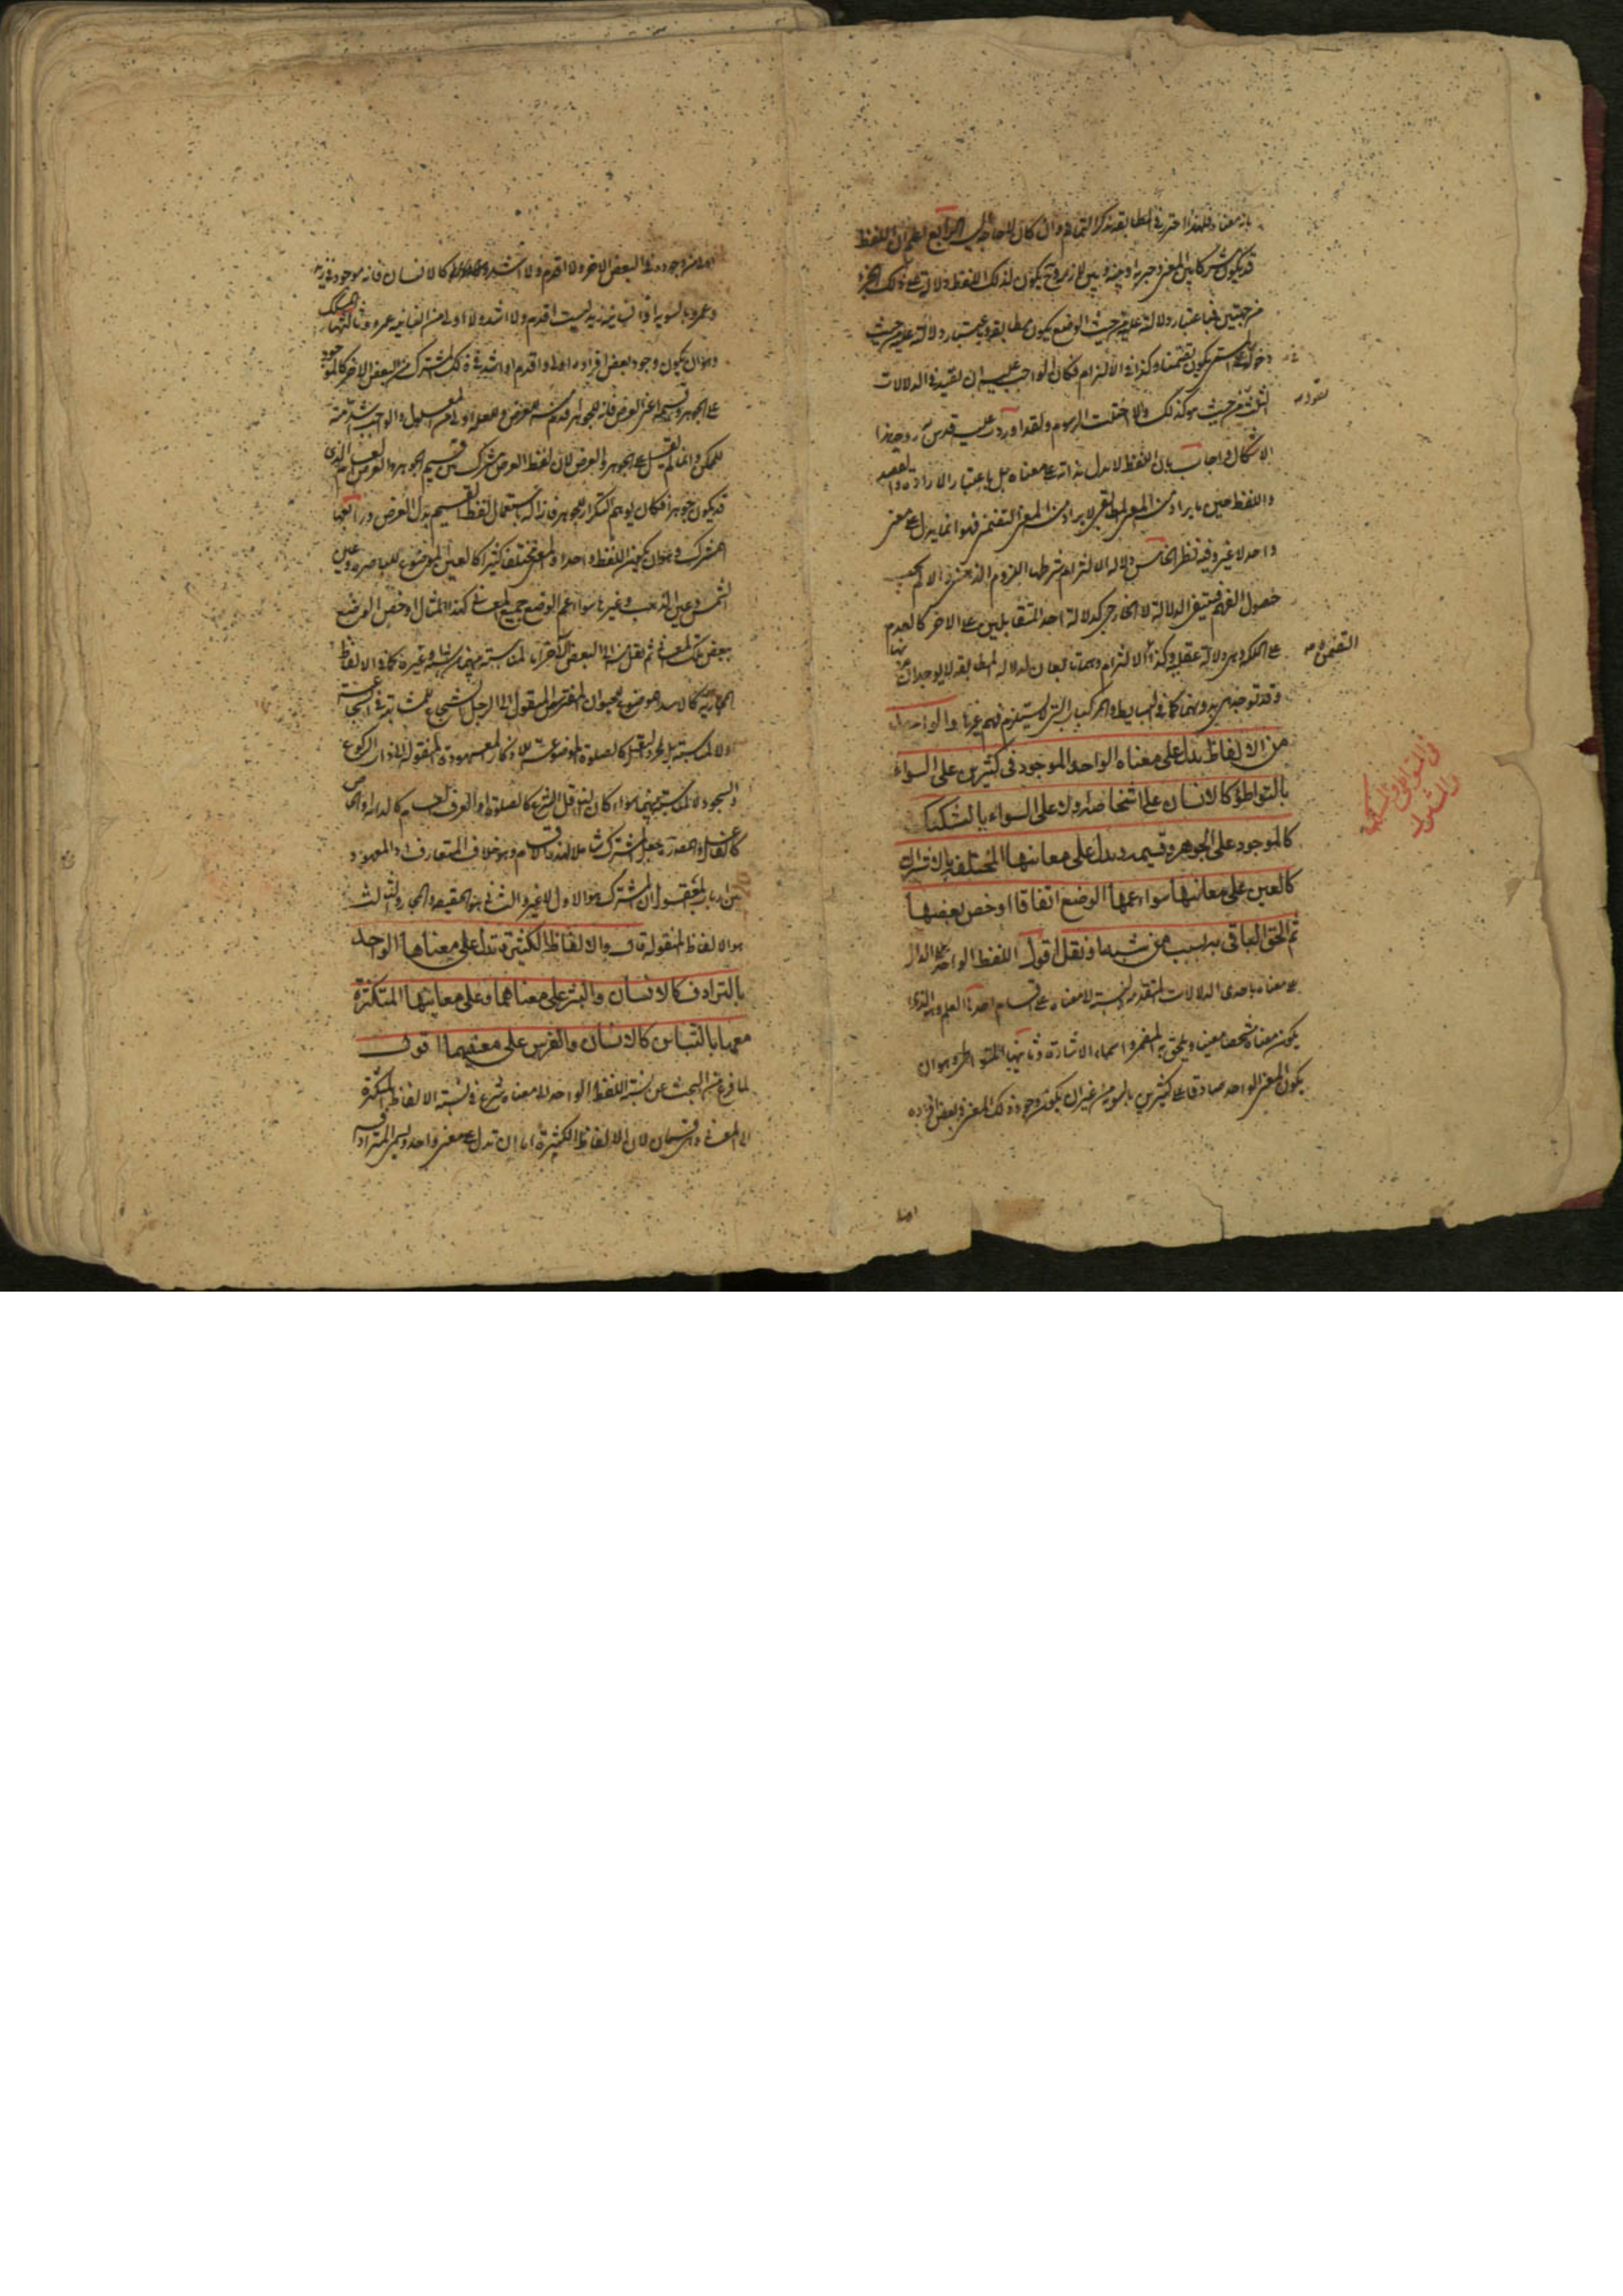 بازمعناه فلهذا احترز فى المطابقة بذكر التمام وان كان للحاظ الرابع اعلم ان اللفظ
قد يكون مشتركا بين المعنى وجزئه او بينه وبين لازمه وح يكون لذلك اللفظ دلالة على ذلك الجزء
من جهتين فباعتبار دلالته عليه من حيث الوضع يكون مطابقة وباعتبار دلالته عليه من حيث
دخوله فى المسمى يكون تضمنا وكذا فى الالتزام فكان الواجب عليه ان يقيد فى الدلالات
الثلث من حيث هو كذلك والا اختلت الرسوم ولقد اوردت عليه قدس روحه هذا
الاشكال واجاب بان اللفظ لا يدل بذاته على معناه بل باعتبار الارادة والقصد
واللفظ حين ما يراد منه المعنى المطابقى لا يراد منه المعنى التضمنى فهو انما يدل على معنى
واحد لا غير وفيه نظر الخامس دلالة الالتزام شرطها اللزوم الذهنى والا لم يجب
حصول الفهم فينتفى الدلالة لا الخارجى كدلالة احد المتقابلين على الاخر كالعدم
على الملكة وهى دلالة عقلية وكذا الالتزام وهما تابعان لدلالة المطابقة لا يوجدان
التضمن
وقد توجد هى بدونهما كما فى البسايط والمركبات التى لا يستلزم فهم غيرها والواحد
من الالفاظ يدل على معناه الواحد الموجود فى كثيرين على السواء
بالتواطؤ كالانسان على اشخاصه ولا على السواء بالتشكيك
فى المتواطى والمشكك
والمشترك
كالموجود على الجوهر وقسيمه ويدل على معانيها المختلفة بالاشتراك
كالعين على معانيها سواء عمها الوضع اتفاقا او خص بعضها
ثم الحق الباقى به بسبب من شبه او نقل اقول اللفظ الواحد الدال
على معناه باحدى الدلالات المتقدمة بالنسبة الى معناه على اقسام احدها العلم وهو الذى
يكون معناه شخصا معينا ويلحق به المضمر واسماء الاشارة وثانيها المتواطى وهو ان
يكون المعنى الواحد صادقا على كثيرين بالسوية من غير ان يكون وجود ذلك المعنى فى بعض افراده
اولى من وجوده فى البعض الاخر ولا اقدم ولا اشد كالانسان فانه موجود فى زيد
وعمرو بالسوية اذ انسانية زيد ليست اقدم ولا اشد ولا اولى من انسانية عمرو وثالثها المشكك
وهو ان يكون وجود بعض افراده اولى او اقدم او اشد فى ذلك المشترك من البعض الاخر كالموجود
على الجوهر وقسيمه اعنى العرض فانه للجوهر اقدم منه للعرض وللعلة اولى من المعلول وللواجب اشد منه
للممكن وانما لم يقل على الجوهر والعرض لان لفظ العرض مشترك بين قسيم الجوهر والعرض العام الذى
قد يكون جوهرا فكان يوهم التكرار للجوهر فازاله باستعمال لفظ القسيم بدل العرض ورابعها
المشترك وهو ان يكون اللفظ واحدا والمعنى مختلفا كثيرا كالعين الموضوع للباصرة وعين
الشمس وعين الذهب وغيرها سواء عم الوضع جميع المعانى كهذا المثال او خص الوضع
ببعض تلك المعانى ثم نقل منه الى البعض الاخر اما لمناسبة بينهما مشابهة وغيره كما فى الالفاظ
المجازية كالاسد الموضوع للحيوان المفترس المنقول الى الرجل الشجاع للمشابهة فى الشجاعة
او لا لمناسبة بل لمجرد النقل كالصلوة الموضوعة للاذكار المعهودة المنقولة الى ذات الركوع
والسجود لا لمناسبة بينهما سواء كان الناقل الشرع كالصلوة او العرف العام كالدابة او الخاص
كالفاعل والمصدر بجعل المشترك شاملا لهذه الاقسام وهو خلاف المتعارف اذ المعهود
من ارباب المعقول ان المشترك هو الاول لا غير والثانى هو الحقيقة والمجاز والثالث
هو الالفاظ المنقولة قال والالفاظ الكثيرة تدل على معناها الواحد
بالترادف كالانسان والبشر على معناهما وعلى معانيها المتكثرة
معها بالتباين كالانسان والفرس على معنييهما اقول
لما فرغ من البحث عن نسبة اللفظ الواحد الى معناه شرع فى نسبة الالفاظ المتكثرة
الى المعنى وهو قسمان لان الالفاظ الكثيرة اما ان تدل على معنى واحد ويسمى المترادفة